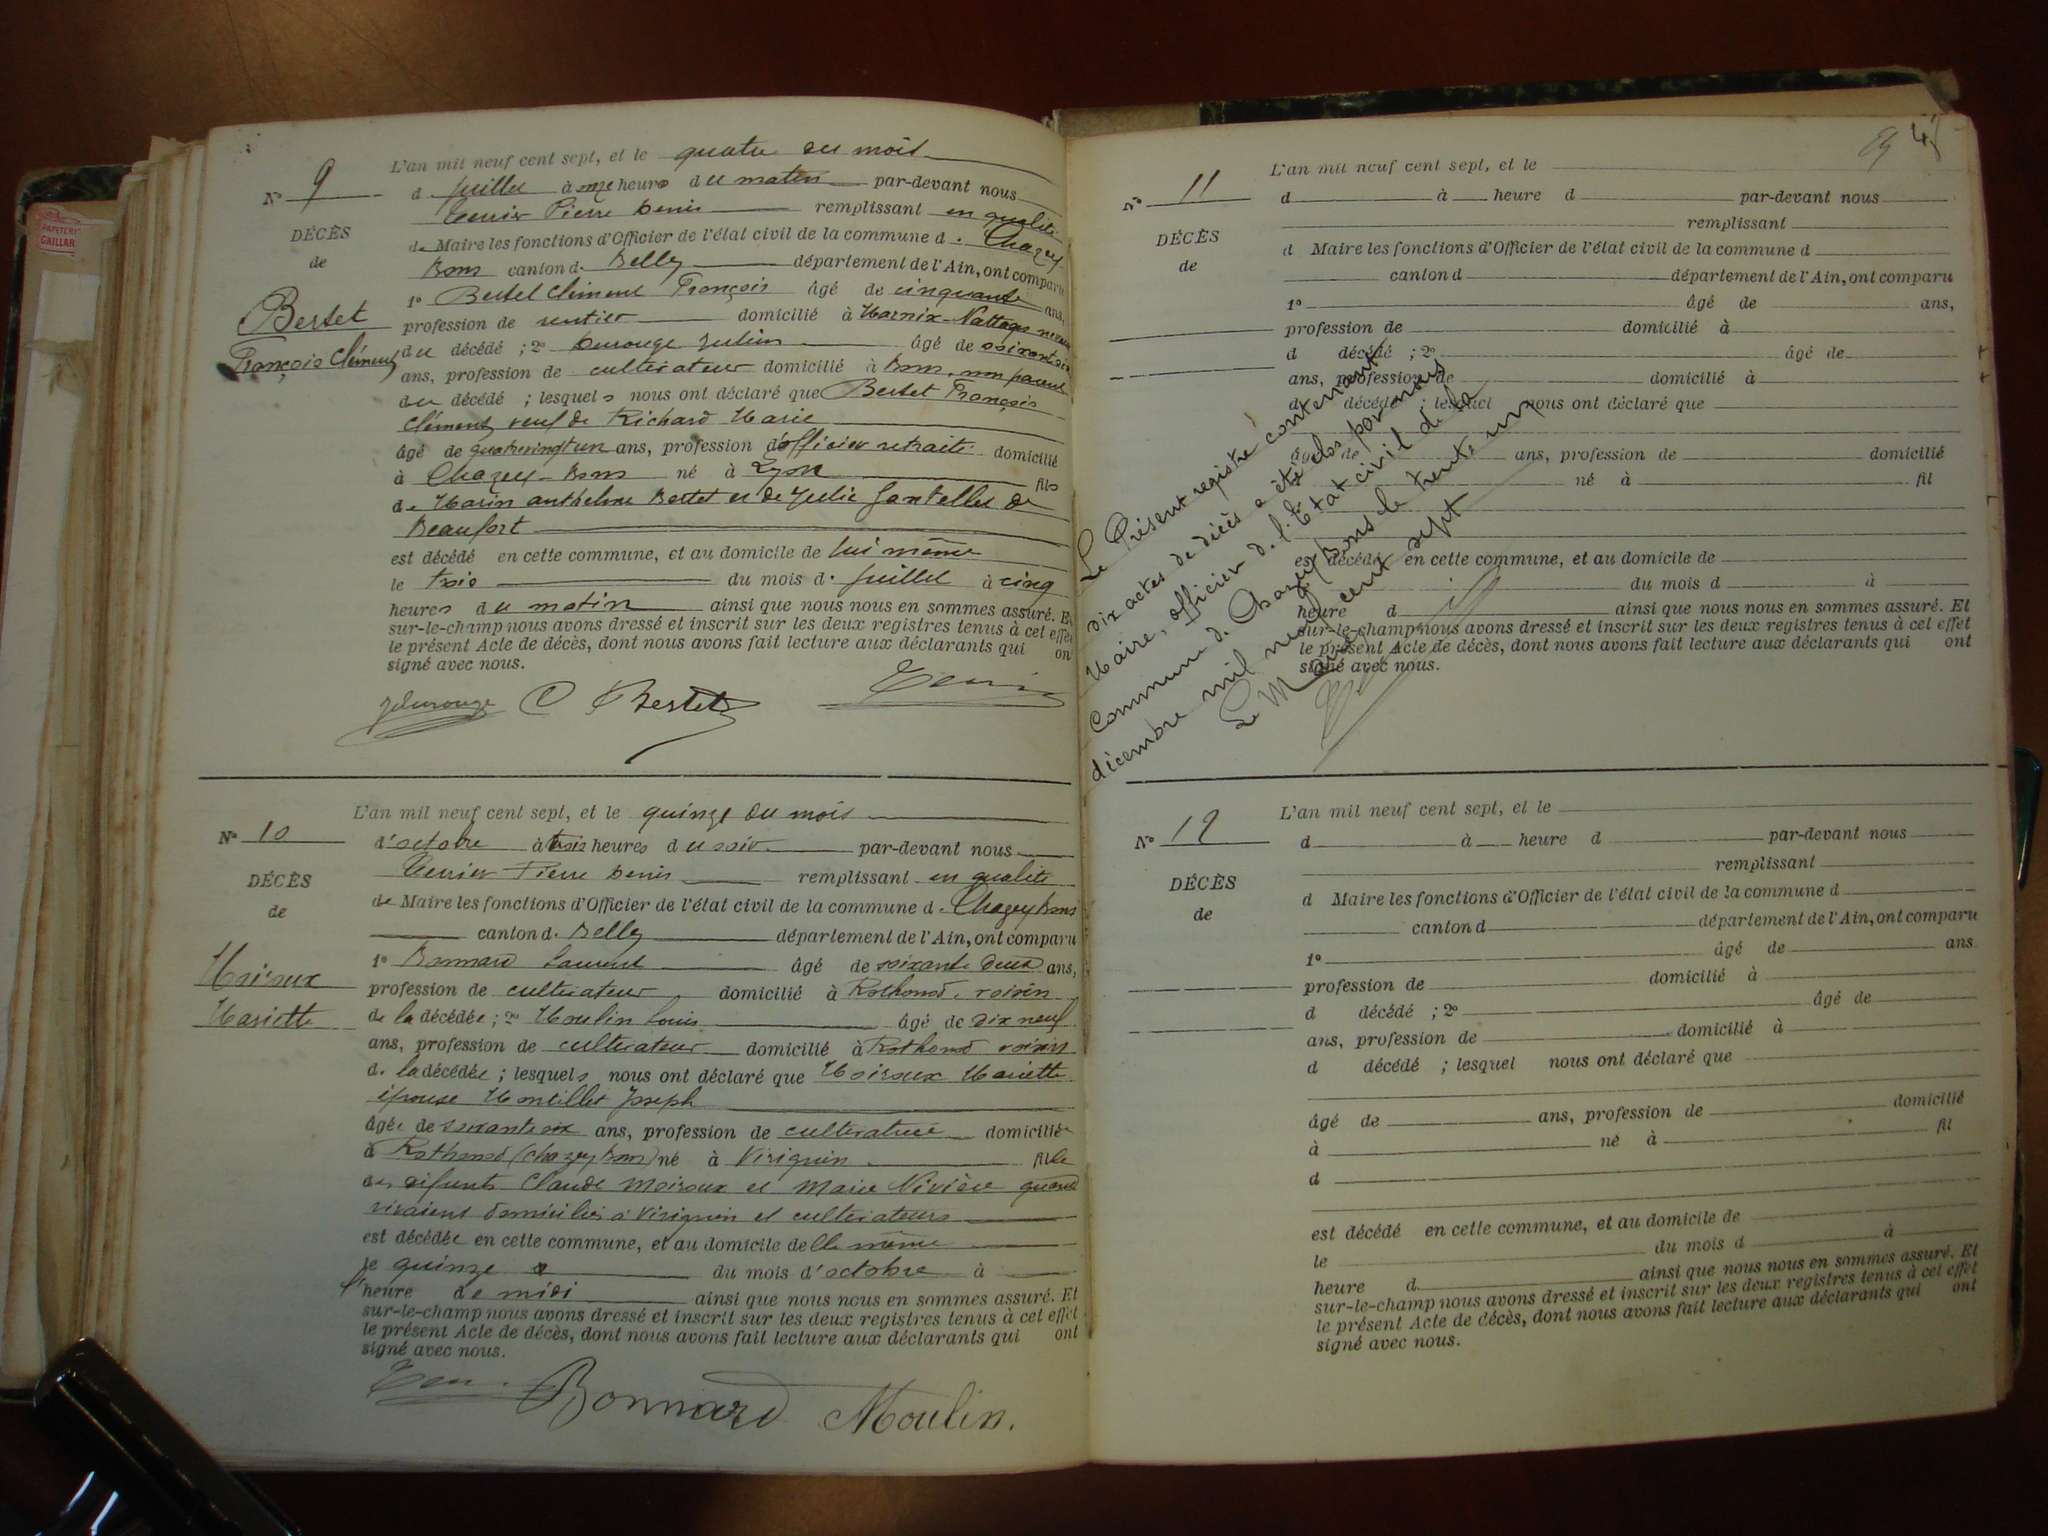 PAPETERI
GAILLAR
N° 9
DÉCÈS
de
Bertet
François Clément
L'an mil neuf cent sept, et le quatre du mois
d juillet à onze heures du matin par-devant nous
Terrier Pierre Denis remplissant en qualité
de Maire les fonctions d'Officier de l'état civil de la commune d. Chazey
Bons canton d. Belley département de l'Ain, ont comparu
1° Bertet Clément François âgé de cinquante ans,
profession de rentier domicilié à Marnix-Nattages neveu
du décédé ; 2° Durouge Julien âgé de
ans, profession de cultivateur domicilié à Bons, non parent
du décédé ; lesquels nous ont déclaré que Bertet François
Clément, veuf de Richard Marie
âgé de quatrevingt un ans, profession d'officier retraité domicilié
à Chazey-Bons né à Lyon fils
de Marin anthelme Bertet et de Julie de
Beaufort
est décédé en cette commune, et au domicile de lui même
le trois du mois d. juillet à cinq
heures du matin ainsi que nous nous en sommes assuré. Et
sur-le-champ nous avons dressé et inscrit sur les deux registres tenus à cet effet
le présent Acte de décès, dont nous avons fait lecture aux déclarants qui ont
signé avec nous.
JDurouge C Bertet Terrier
N° 10
DÉCÈS
de
Moiroux
Mariette
L'an mil neuf cent sept, et le quinze du mois
d'octobre à trois heures du soir par-devant nous
Terrier Pierre Denis remplissant en qualité
de Maire les fonctions d'Officier de l'état civil de la commune d. Chazey Bons
canton d. Belley département de l'Ain, ont comparu
1° Bonnard Laurent âgé de soixante deux ans,
profession de cultivateur domicilié à Rothonod, voisin
de la décédée ; 2° Moulin Louis âgé de dix neuf
ans, profession de cultivateur domicilié à Rothonod voisin
d. la décédée ; lesquels nous ont déclaré que Moiroux Mariette
épouse Montillet Joseph
âgée de ans, profession de cultivatrice domiciliée
à Rothonod (Chazey Bons) né à Virignin fille
des défunts Claude Moiroux et Marie Nivière quand
vivaient domiciliés à Virignin et cultivateurs
est décédée en cette commune, et au domicile d'elle même
le quinze du mois d'octobre à
heure de midi ainsi que nous nous en sommes assuré. Et
sur-le-champ nous avons dressé et inscrit sur les deux registres tenus à cet effet
le présent Acte de décès, dont nous avons fait lecture aux déclarants qui ont
signé avec nous.
Bonnard Moulin.
N° 11
DÉCÈS
de
L'an mil neuf cent sept, et le
d à heure d par-devant nous
remplissant
d Maire les fonctions d'Officier de l'état civil de la commune d
canton d département de l'Ain, ont comparu
1° âgé de ans,
profession de domicilié à
d décédé ; 2° âgé de
ans, profession de domicilié à
d décédé ; lesquel nous ont déclaré que
âgé de ans, profession de domicilié
né à fil
est décédé en cette commune, et au domicile de
du mois d à
heure d ainsi que nous nous en sommes assuré. Et
sur-le-champ nous avons dressé et inscrit sur les deux registres tenus à cet effet
le présent Acte de décès, dont nous avons fait lecture aux déclarants qui ont
signé avec nous.
Le Présent registre contenant
dix actes de décès a été clos par nous
Maire, officier d. l'Etat civil de la
commune d. Chazey Bons le trente un
décembre mil neuf cent sept
Le Maire
N° 12
DÉCÈS
de
L'an mil neuf cent sept, et le
d à heure d par-devant nous
remplissant
d Maire les fonctions d'Officier de l'état civil de la commune d
canton d département de l'Ain, ont comparu
1° âgé de ans
profession de domicilié à
d décédé ; 2° âgé de
ans, profession de domicilié à
d décédé ; lesquel nous ont déclaré que
âgé de ans, profession de domicilié
à né à fil
d
est décédé en cette commune, et au domicile de
le du mois d à
heure d ainsi que nous nous en sommes assuré. Et
sur-le-champ nous avons dressé et inscrit sur les deux registres tenus à cet effet
le présent Acte de décès, dont nous avons fait lecture aux déclarants qui ont
signé avec nous.